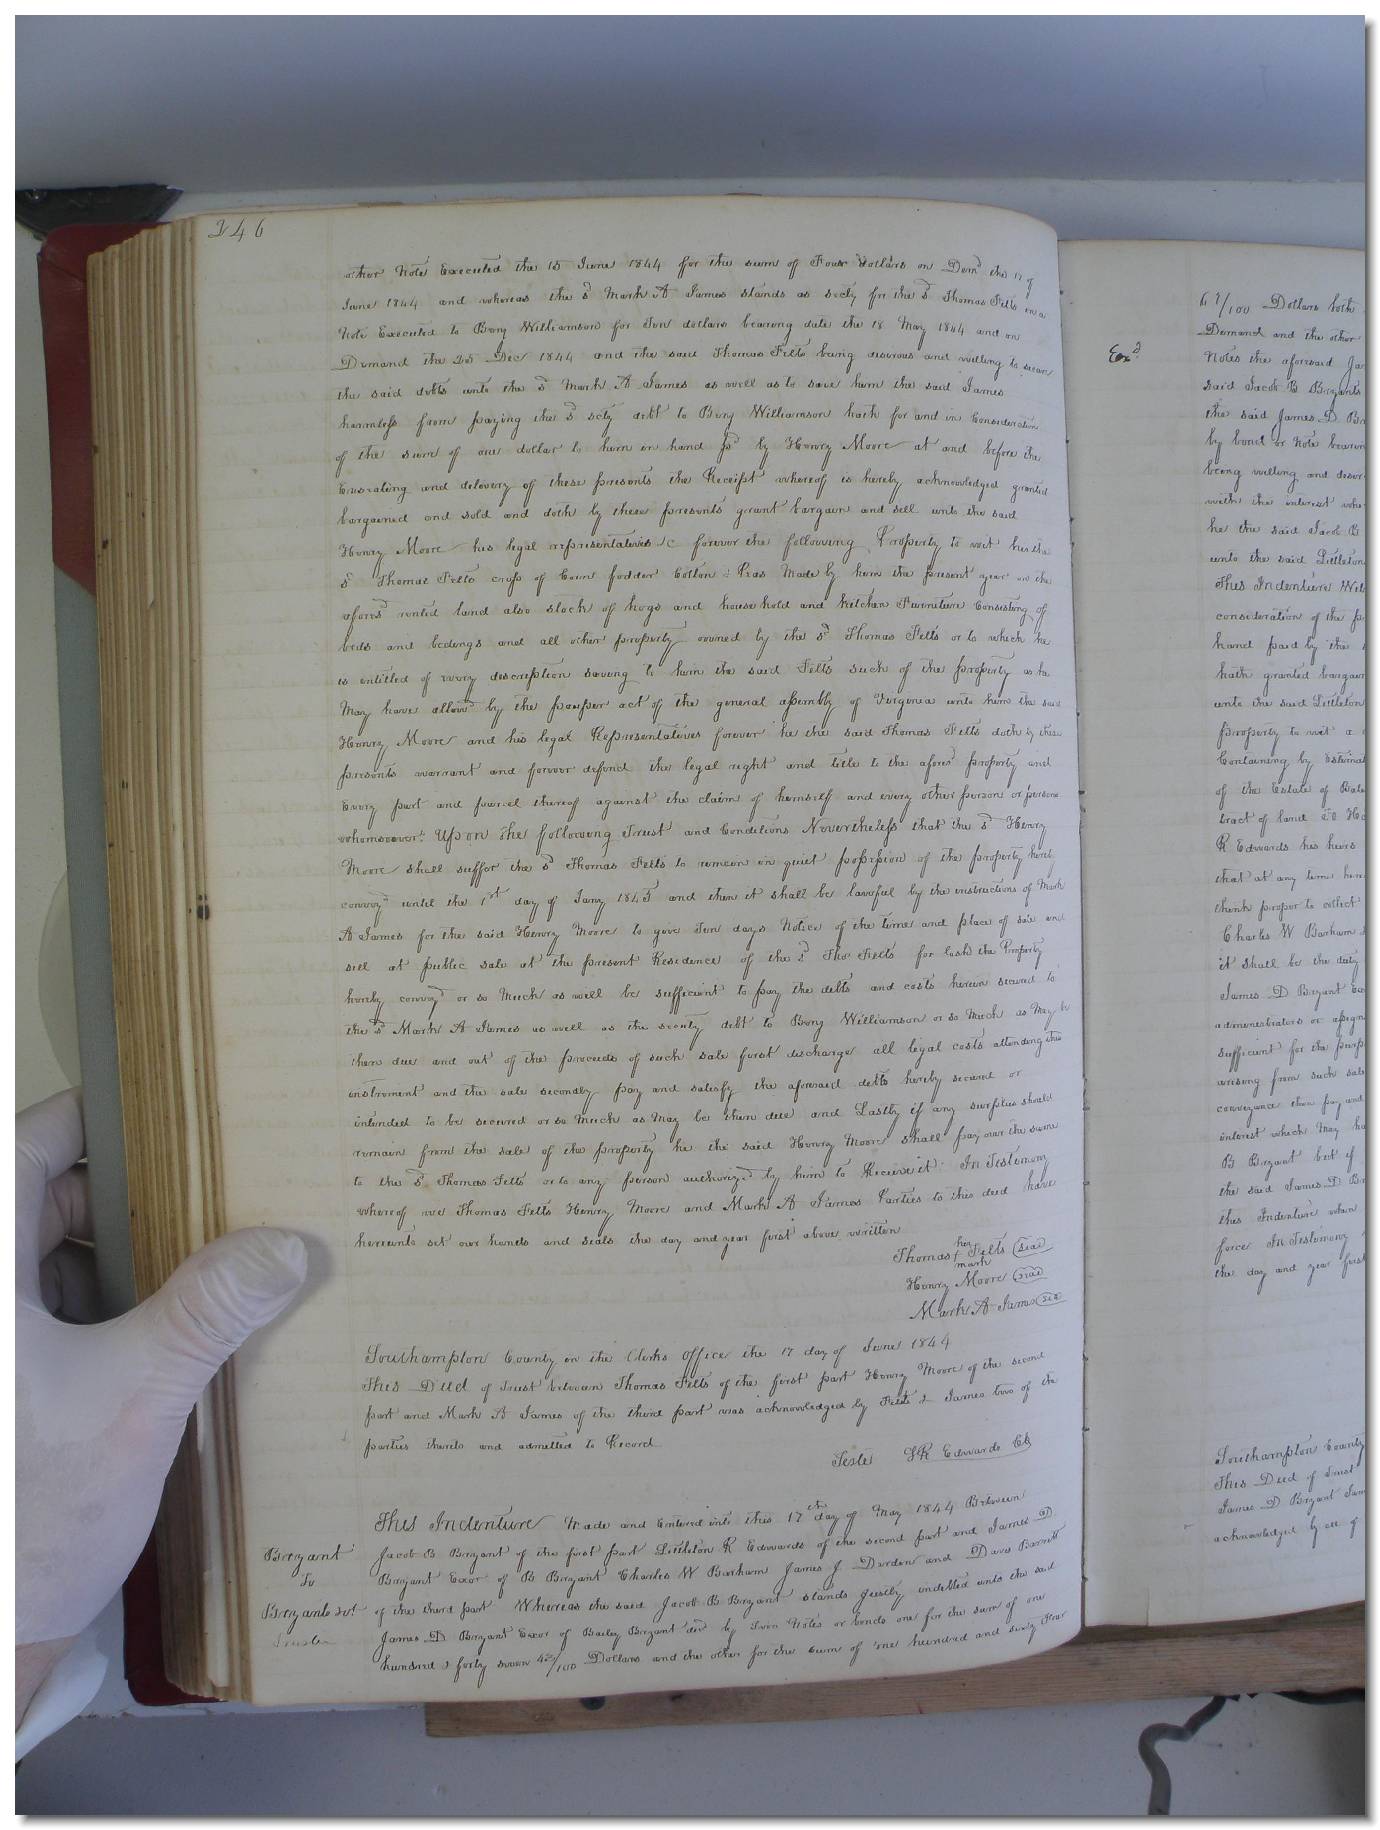 246
other Note Executed the 15 June 1844 for the sum of Four dollars on Demd the 17 of
June 1844 and whereas the sd Mark A James stands as secty for the sd Thomas Felts in a
Note Executed to Benj Williamson for Ten dollars bearing date the 18 May 1844 and on
Demand the 25 Dec 1844 and the said Thomas Felts being desirous and willing to secure
the said debts unto the sd Mark A James as well as to save him the said James
harmless from paying the sd scty debt to Benj Williamson hath for and in Consideration
of the sum of one dollar to him in hand pd by Henry Moore at and before the
Ensealing and delivery of these presents the Receipt whereof is hereby acknowledged granted
bargained and sold and doth by these presents grant bargain and sell unto the said
Henry Moore his legal representatives &c forever the following Property to wit his the
sd Thomas Felts crop of Corn fodder Cotton & Peas Made by him the present year on the
aforesd rented land also stock of hogs and household and kitchen Furniture Consisting of
beds and bedings and all other property owned by the sd Thomas Felts or to which he
is entitled of every description saveing to him the said Felts such of the property as he
May have allowd by the pauper act of the general assembly of Virginia unto him the said
Henry Moore and his legal Representatives forever he the said Thomas Felts doth by these
presents warrant and forever defend the legal right and title to the aforesd property and
Every part and parcel thereof against the claim of himself and every other person or persons
whomsoever. Upon the following Trust and Conditions Nevertheless that the sd Henry
Moore shall suffer the sd Thomas Felts to remain in quiet possession of the property hereby
conveyd until the 1st day of Jany 1845 and then it shall be lawful by the instructions of Mark
A James for the said Henry Moore to give Ten days Notice of the time and place of sale and
sell at public sale at the present Residence of the sd Thos Felts for Cash the Property
hereby conveyd or so Much as will be sufficient to pay the debts and costs herein secured to
the sd Mark A James as well as the security debt to Benj Williamson or so Much as May be
then due and out of the proceeds of such sale first discharge all legal costs attending this
instrument and the sale secondly pay and satisfy the aforesaid debts hereby secured or
intended to be secured or so Much as May be then due and Lastly if any surplus should
remain from the sale of the property he the said Henry Moore shall pay over the same
to the sd Thomas Felts or to any person authorized by him to Receive it. In Testimony
whereof we Thomas Felts Henry Moore and Mark A James Parties to this deed have
hereunto set our hands and seals the day and year first above written
Thomas his mark Felts Seal
Henry Moore Seal
Mark A James Seal
Southampton County in the Clerks Office the 17 day of June 1844
This Deed of Trust between Thomas Felts of the first part Henry Moore of the second
part and Mark A James of the third part was acknowledged by Felts & James two of the
parties thereto and admitted to Record
Teste LR Edwards Ck
This Indenture Made and Entered into this 17th day of May 1844 Between
Bryant
To
Bryants
Trustee
Jacob B Bryant of the first part Littleton R Edwards of the second part and James D
Bryant Exor of B Bryant Charles W Barham James J. Darden and Davis Barrett
of the third part Whereas the said Jacob B Bryant stands justly indebted unto the said
James D Bryant Exor of Bailey Bryant decd by Two Notes or bonds one for the sum of one
hundred & forty seven /100 Dollars and the other for the sum of one hundred and sixty four
Exd
/100 Dollars both
Demand and the other
Notes the aforesaid
said Jacob B Bryants
the said James D
by bond or Note
being willing and
with the interest
he the said Jacob B
unto the said Littleton
This Indenture
consideration of the
hand paid by the
hath granted
unto the said Littleton
property to wit a
Containing by
of the Estate of
tract of land To
R Edwards his heirs
that at any time
think proper to collect
Charles W Barham
it shall be the duty
James D Bryant
administrators or
sufficient for the
arising from such
conveyance then pay and
interest which May
B Bryant but if
the said James D
this Indenture
force In Testimony
the day and year first
Southampton County
This Deed of Trust
James D Bryant
acknowledged by all of